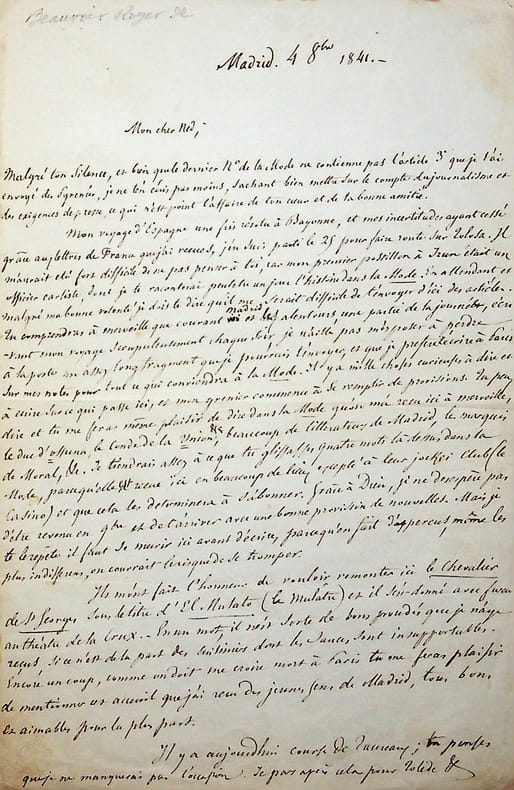 Beauvoir Roger de
Madrid. 4 8bre 1841.-
Mon cher Ned,
Malgré ton Silence, et bien que le dernier No de la Mode ne contienne pas l'article 3e que je t'ai
envoyé des Pyrénées, je ne t'en écris pas moins, sachant bien mettre sur le compte du journalisme et
des exigences de presse, ce qui n'est point l'affaire de ton cœur et de ta bonne amitié.
Mon voyage d'Espagne une fois résolu à Bayonne, et mes incertitudes ayant cessé
grâce aux lettres de France que j'ai reçues, j'en suis parti le 25 pour faire route sur Tolosa. Il
m'aurait été fort difficile de ne pas penser à toi, car mon premier postillon à Irun était un
officier carliste, dont je te raconterai peut être un jour l'histoire dans la Mode. En attendant et
malgré ma bonne volonté je dois te dire qu'il me serait difficile de t'envoyer d'ici des articles.
Tu comprendras à merveille que courant Madrid et ses alentours une partie de la journée, écri
-vant mon voyage scrupuleusement chaque soir, je n'aille pas m'exposer à perdre
à la poste un assez long fragment que je pourrais t'envoyer, et que je préfère écrire à Paris
sur mes notes pour tout ce qui conviendra à la Mode. Il y a mille choses curieuses à dire et
à écrire sur ce qui se passe ici, et mon grenier commence à se remplir de provisions. Tu peux
dire et tu me feras même plaisir de dire dans la Mode qu'on m'a reçu ici à merveille,
le duc d'ossuna, le Conde de la Union, &c, beaucoup de littérateurs de Madrid, le marquis
de &c. Je tiendrais assez à ce que tu glissasses quatre mots là dessus dans la
Mode, parce qu'elle est reçue ici en beaucoup de lieux, excepté à leur jockei Club (le
Casino) et que cela les déterminera à s'abonner. Grâce à Dieu, je ne désespère pas
d'être revenu en 9bre et d'arriver avec une bonne provision de nouvelles. Mais je
te le répète il faut se murir ici avant d'écrire, parce qu'en fait d'apperçus, même les
plus indifférens, on courrait le risque de se tromper.
Ils m'ont fait l'honneur de vouloir remonter ici le Chevalier
de St Georges sous le titre d'El Mulato (le Mulatre) et il s'est donné avec fureur
au théatre de la Cruz. - En un mot, il n'est sorte de bons procédés que je n'aye
reçus si ce n'est de la part des cuisiniers dont les sauces sont insupportables.
Encore un coup, comme on doit me croire mort à Paris tu me feras plaisir
de mentionner cet accueil que j'ai reçu des jeunes gens de Madrid, tous bons
et aimables pour la plus part.
Il y a aujourd'hui course de taureaux; tu penses
que je ne manquerai pas l'occasion. Je pars après cela pour Tolède &